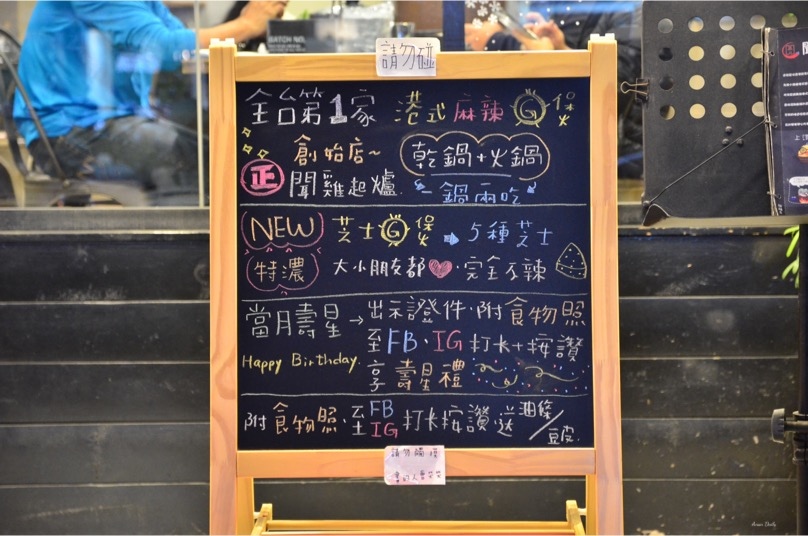 BATCH NO.
請勿碰
全台第1家 港式麻辣G煲
創始店~ 乾鍋+火鍋
正 聞雞起爐 一鍋兩吃
NEW 芝士G煲 5種芝士
特濃 大小朋友都 · 完全不辣
當月壽星→出示證件·附食物照
至FB·IG打卡+按讚
Happy Birthday. 享壽星禮
附食物照·至FB IG打卡按讚·送油條/豆皮
請勿觸摸